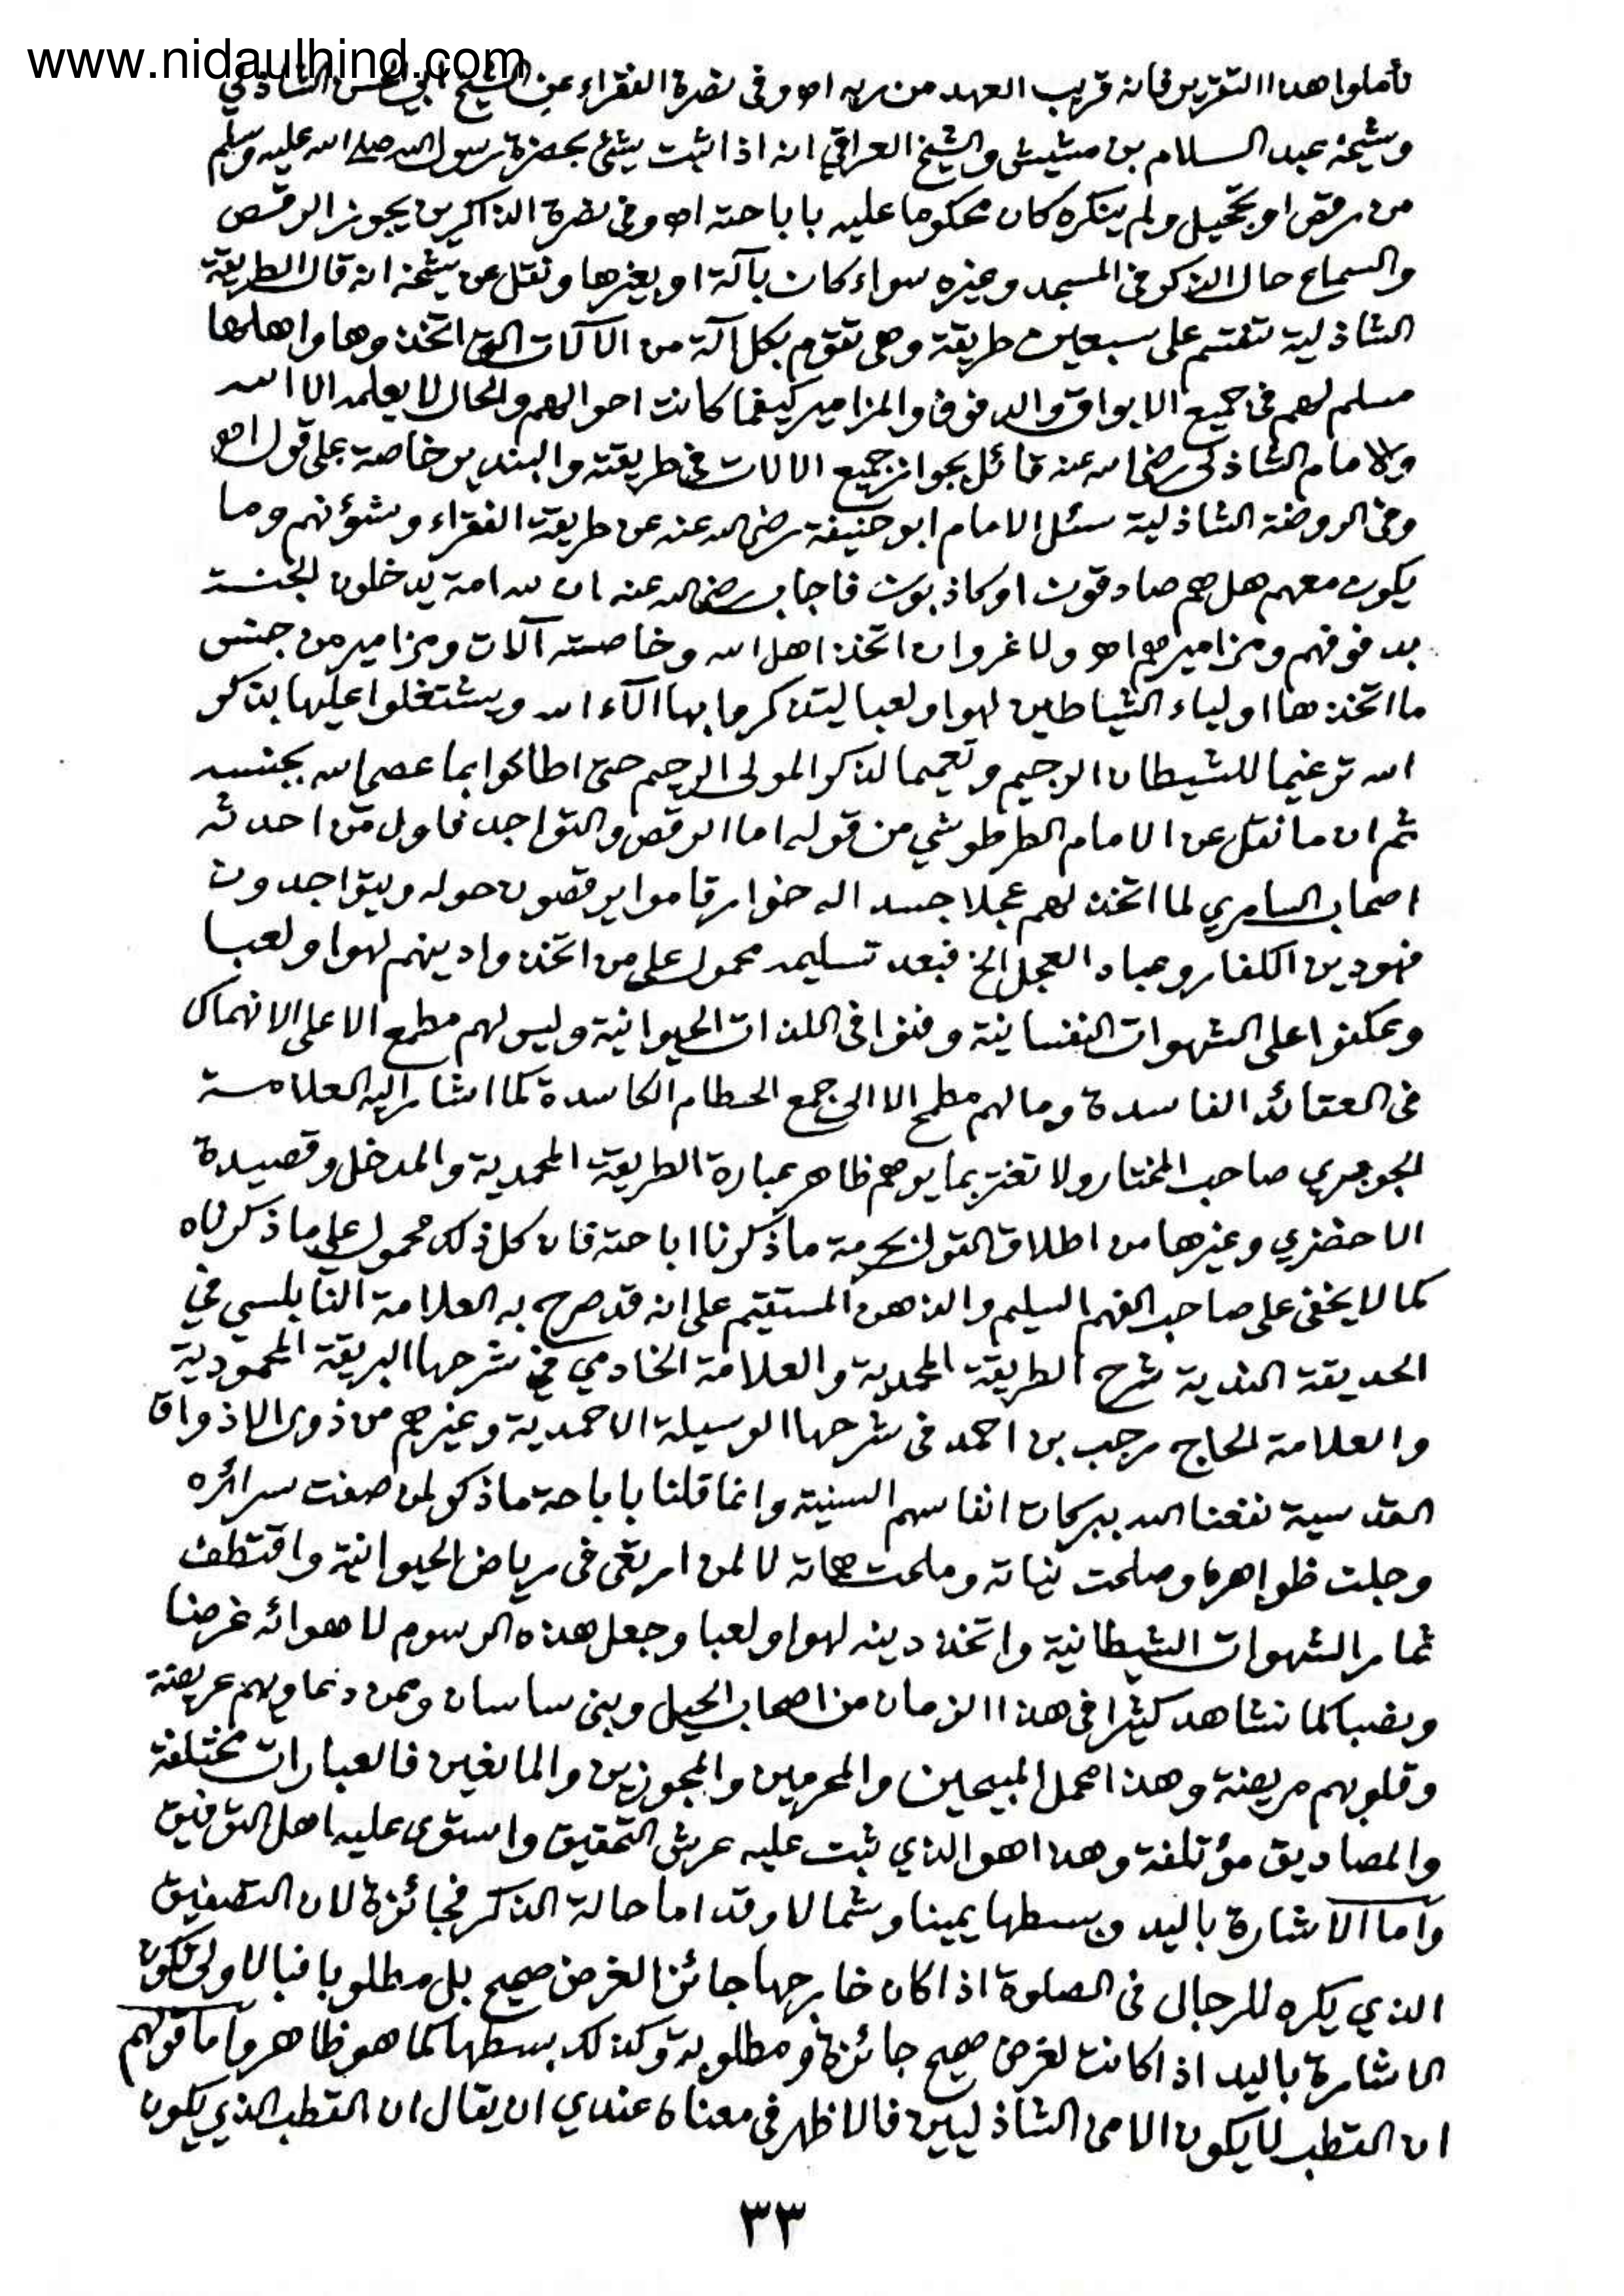 www.nidaulhind.com
تأملوا هذا التقرير فانه قريب العهد من ربه اھ وفى نصرة الفقراء عن الشيخ ابي الحسن الشاذلي
وشيخه عبد السلام بن مشيش والشيخ العراقي انه اذا ثبت شئ بحضرة رسول الله صلى الله عليه وسلم
من رقص او تحجيل ولم ينكره كان محكوما عليه باباحته اھ وفى نصرة الذاكرين يجوز الرقص
والسماع حال الذكر فى المسجد وغيره سواء كان بآلة او بغيرها ونقل عن شيخه انه قال الطريقة
الشاذلية تنقسم على سبعين طريقة وهى تقوم بكل آلة من الآلات التى اتخذوها واهلها
مسلم لهم فى جميع الابواق والدفوف والمزامير كيفما كانت احوالهم والحال لا يعلمه الا الله
والامام الشاذلى رضى الله عنه قائل بجواز جميع الالات فى طريقته والبندير خاصة على قول اھ
وفى الروضة الشاذلية سئل الامام ابو حنيفة رضى الله عنه عن طريقة الفقراء وشؤنهم وما
يكون معهم هل هم صادقون او كاذبون فاجاب رضى الله عنه ان لله امة يدخلون الجنة
بدفوفهم ومزاميرهم اھ ولا غرو ان اتخذ اهل الله وخاصته آلات ومزامير من جنس
ما اتخذها اولياء الشياطين لهوا ولعبا ليتذكروا بها الآء الله ويشتغلوا عليها بذكر
الله ترغيما للشيطان الرجيم وتعميما لذكر المولى الرحيم حتى اطاعوا بما عصى الله بجنسه
ثم ان ما نقل عن الامام الطرطوشي من قوله اما الرقص والتواجد فاول من احدثه
اصحاب السامري لما اتخذ لهم عجلا جسدا له خوار قاموا يرقصون حوله ويتواجدون
فهو دين الكفار وعباد العجل الخ فبعد تسليمه محمول على من اتخذوا دينهم لهوا ولعبا
وعكفوا على الشهوات النفسانية وفنوا فى اللذات الحيوانية وليس لهم مطمع الا على الانهماك
فى العقائد الفاسدة وما لهم مطمح الا الى جمع الحطام الكاسدة كما اشار اليه العلامة
الجوهري صاحب المختار ولا تغتر بما يوهم ظاهر عبارة الطريقة المحمدية والمدخل وقصيدة
الاخضري وغيرها من اطلاق القول بحرمة ما ذكرنا اباحته فان كل ذلك محمول على ما ذكرناه
كما لا يخفى على صاحب الفهم السليم والذهن المستقيم على انه قد صرح به العلامة النابلسي في
الحديقة الندية شرح الطريقة المحمدية والعلامة الخادمي فى شرحها البريقة المحمودية
والعلامة الحاج رجب بن احمد فى شرحها الوسيلة الاحمدية وغيرهم من ذوى الاذواق
القدسية نفعنا الله ببركات انفاسهم السنية وانما قلنا باباحة ما ذكر لمن صفت سرائره
وجلت ظواهره وصلحت نياته وملحت هماته لا لمن ارتقى فى رياض الحيوانية واقتطف
ثمار الشهوات الشيطانية واتخذ دينه لهوا ولعبا وجعل هذه الرسوم لاهوائه غرضا
ونصبا كما نشاهد كثيرا فى هذا الزمان من اصحاب الحيل وبنى ساسان وممن دعاويهم عريضة
وقلوبهم مريضة وهذا محمل المبيحين والمحرمين والمجوزين والمانعين فالعبارات مختلفة
والمصاديق مؤتلفة وهذا هو الذي ثبت عليه عرش التحقيق واستوى عليه اهل التوفيق
وأما الاشارة باليد وبسطها يمينا وشمالا وقداما حالة الذكر فجائزة لان التصفيق
الذي يكره للرجال فى الصلوة اذا كان خارجها جائز الغرض صحيح بل مطلوبا فبالاولى تكون
الاشارة باليد اذا كانت لغرض صحيح جائزة ومطلوبة وكذلك بسطها كما هو ظاهر وأما قولهم
ان القطب لا يكون الا من الشاذليين فالاظهر فى معناه عندي ان يقال ان القطب الذي يكون
٣٣